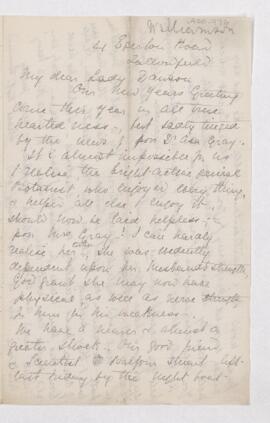 Williamson
4 Egerton Road
Fallowfield
My dear Lady Dawson
Our New Years Greeting
come this year in all true
heartedness, but sadly tinged
by the news of poor Dr Asa Gray.
It is almost impossible for us
to realise the bright active genial
Botanist, who enjoyed every thing,
& helped all else to enjoy it,
should now be laid helpless;
poor Mrs Gray! I can hardly
realise her, she was evidently
dependent upon her Husband's strength,
God grant she may now have
physical, as well as nerve strength
to him in his weakness.
We have a nearer & almost a
greater shock. Our good friend
& Scientist Dr Balfour Stewart left
last Friday by the night boat